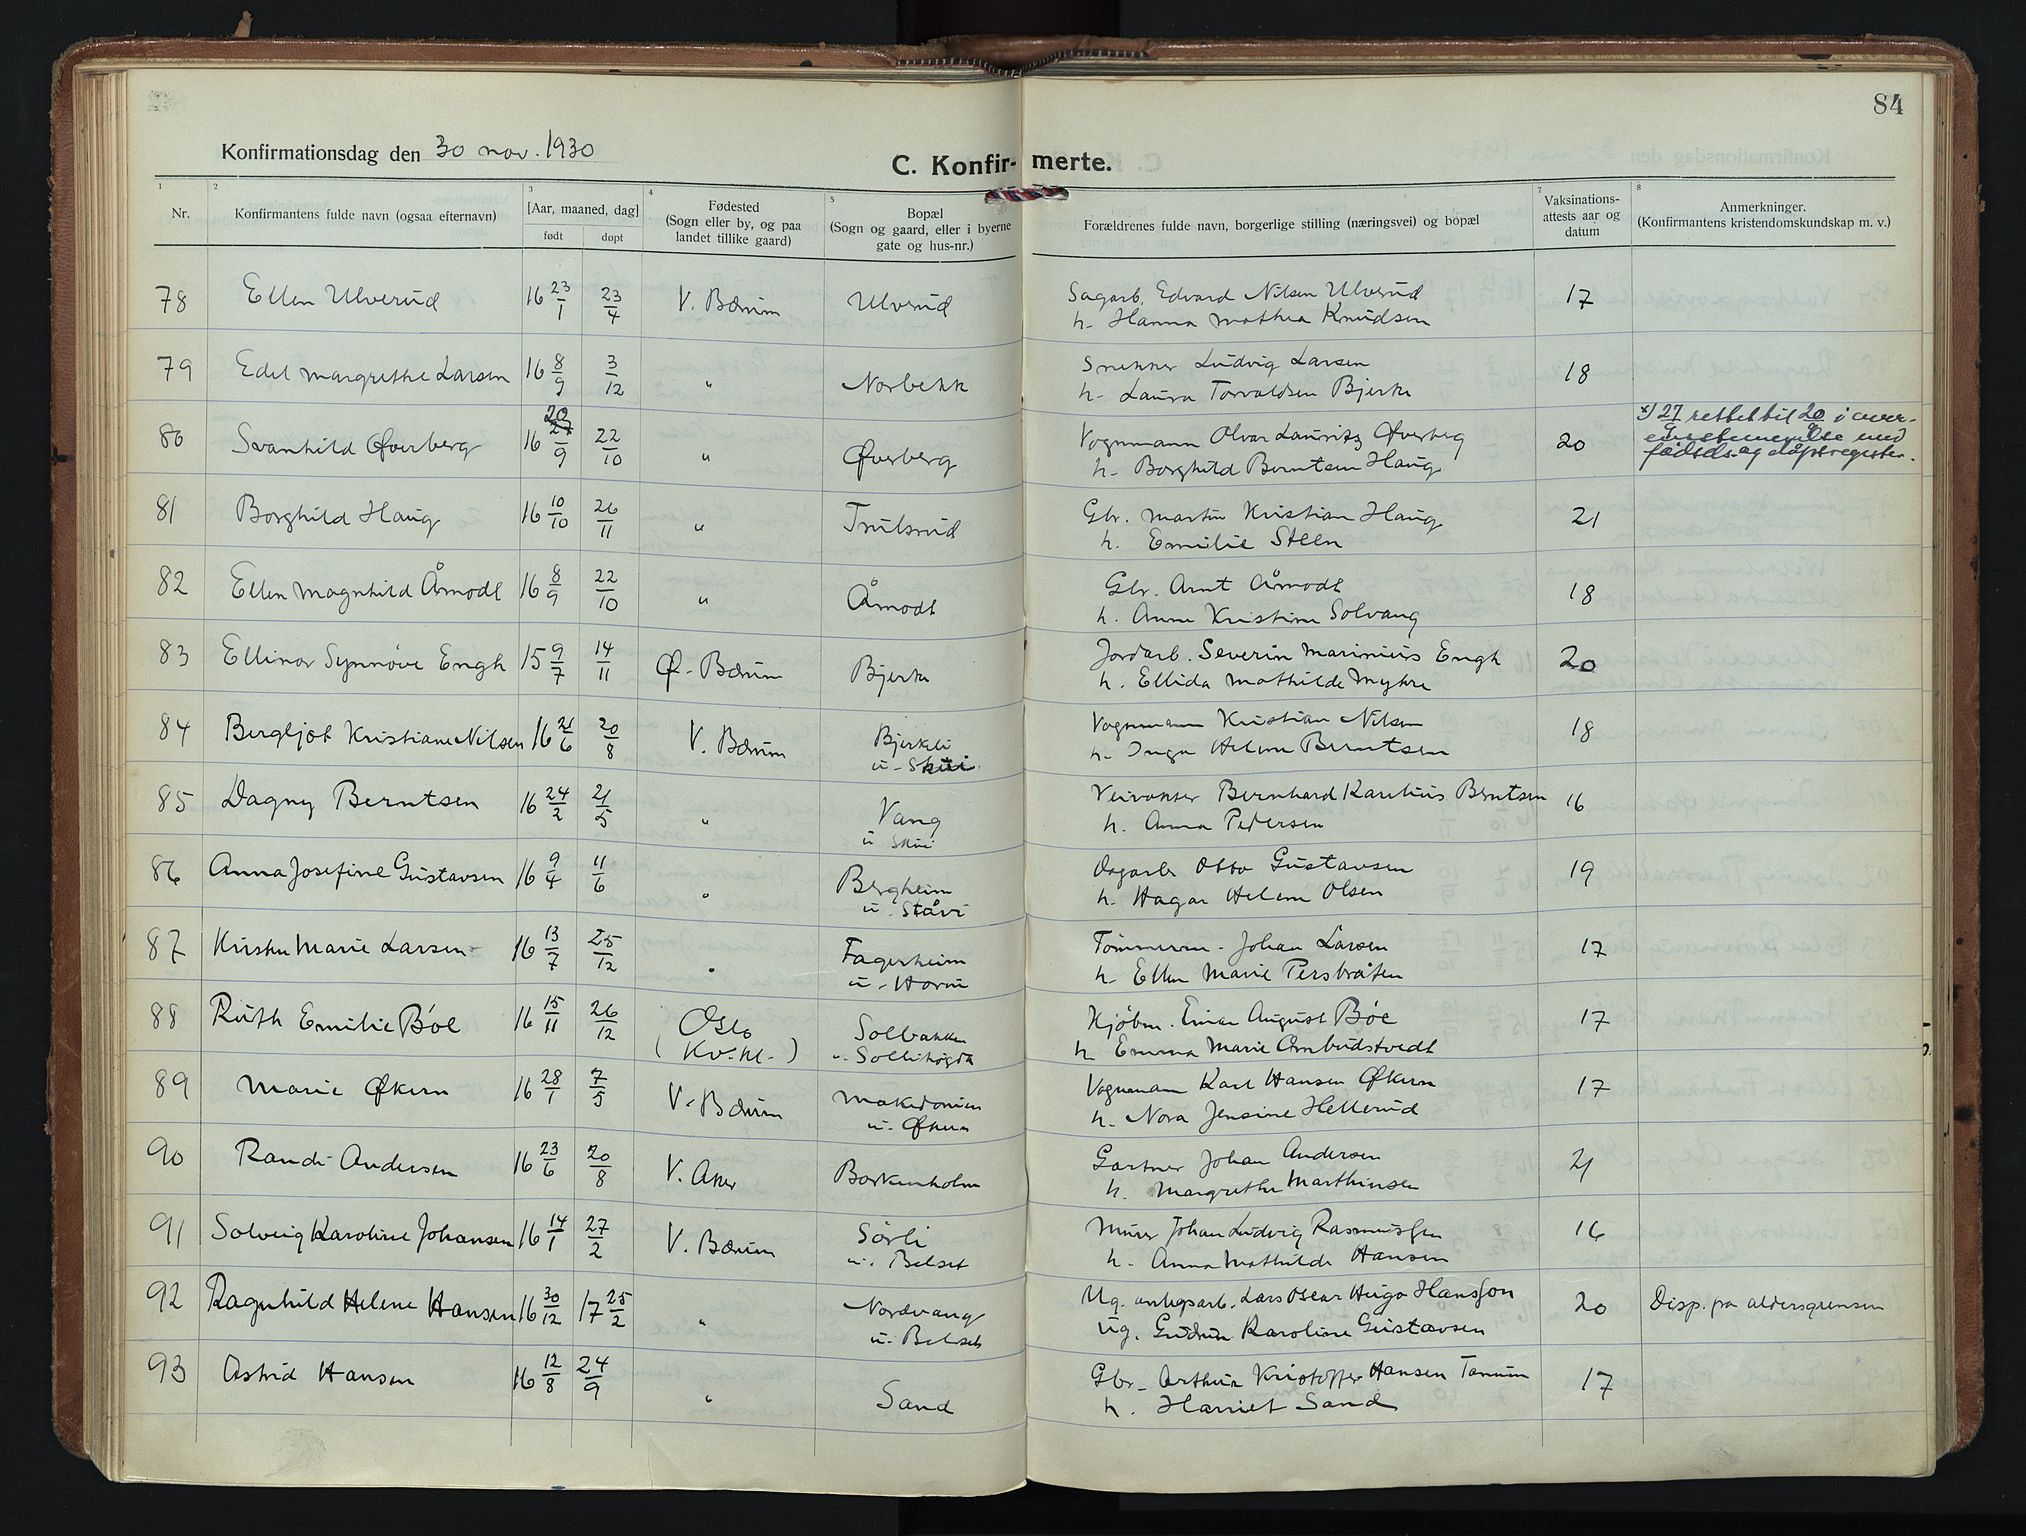 84
Konfirmationsdag den 30 nov. 1930
C. Konfir-merte.
1 2 3 4 5 7 8
Nr.
Konfirmantens fulde navn (ogsaa efternavn)
[Aar, maaned, dag]
født døpt
Fødested
(Sogn eller by, og paa
landet tillike gaard)
Bopæl
(Sogn og gaard, eller i byerne
gate og hus-nr.)
Forældrenes fulde navn, borgerlige stilling (næringsvei) og bopæl
Vaksinations-
attests aar og
datum
Anmerkninger.
(Konfirmantens kristendomskundskap m. v.)
78 Ellen Ulverud 16 23/1 23/4 V. Bærum Ulverud Sagarb. Edvard Nilsen Ulverud 17
h. Hanna Mathea Knudsen
79 Edel Margrethe Larsen 16 8/9 3/12 " Norbekk Snekker Ludvig Larsen 18
h. Laura Torvaldsen Bjerke
80 Svanhild Øverberg 16 20 27/9 22/10 " Øverberg Vognmann Olvar Lauritz Øverberg 20
h. Borghild Berntsen Haug
x) 27/9 rettet til 20/9 i over-
ensstemmelse med
fødsels- og dåpsregister.
81 Borghild Haug 16 10/10 26/11 " Trulsrud Gbr. Martin Kristian Haug 21
h. Emilie Steen
82 Ellen Magnhild Åmodt 16 8/9 22/10 " Åmodt Gbr. Arnt Åmodt 18
h. Anne Kristine Solvang
83 Ellinor Synnøve Engh 15 9/7 14/11 Ø. Bærum Bjerke Jordarb. Severin Marinius Engh 20
h. Ellida Mathilde Mykre
84 Bergljot Kristiane Nilsen 16 21/6 20/8 V. Bærum Bjerkeli Vognmann Kristian Nilsen 18
u. Skui h. Inga Helene Berntsen
85 Dagny Berntsen 16 24/2 21/5 " Vang Veivokter Bernhard Karelius Berntsen 16
u Skui h. Anna Pedersen
86 Anna Josefine Gustavsen 16 9/4 11/6 " Bergheim Dagarb Otto Gustavsen 19
u. Ståvi h. Hagar Helene Olsen
87 Kirsten Marie Larsen 16 13/7 25/12 " Fagerheim Tømmerm. Johan Larsen 17
u. Horni h. Ellen Marie Persbråten
88 Ruth Emilie Böe 16 15/11 26/12 Oslo Solbakken Kjøbm. Einar August Böe 17
(Kv.kl.) u. Sollihögda h Emma Marie Ambudstvedt
89 Marie Økern 16 28/1 7/5 V. Bærum Makedonien Vognmann Karl Hansen Økern 17
u. Økern h. Nora Jensine Hellerud
90 Randi Andersen 16 23/6 20/8 V. Aker Borkenholm Gartner Johan Andersen 21
h. Margrethe Marthinsen
91 Solveig Karoline Johansen 16 14/1 27/2 V. Bærum Sörli Murer Johan Ludvig Rasmussen 16
u. Belset h. Anna Mathilde Hansen
92 Ragnhild Helene Hansen 16 30/12 17 25/2 " Nordvang Ug. anlegsarb. Lars Oscar Hugo Hansson 20 Disp. fra aldersgrensen
u. Belset ug. Gudrun Karoline Gustavsen
93 Astrid Hansen 16 12/8 24/9 " Sand Gbr. Arthur Kristoffer Hansen Tanum 17
h. Harriet Sand